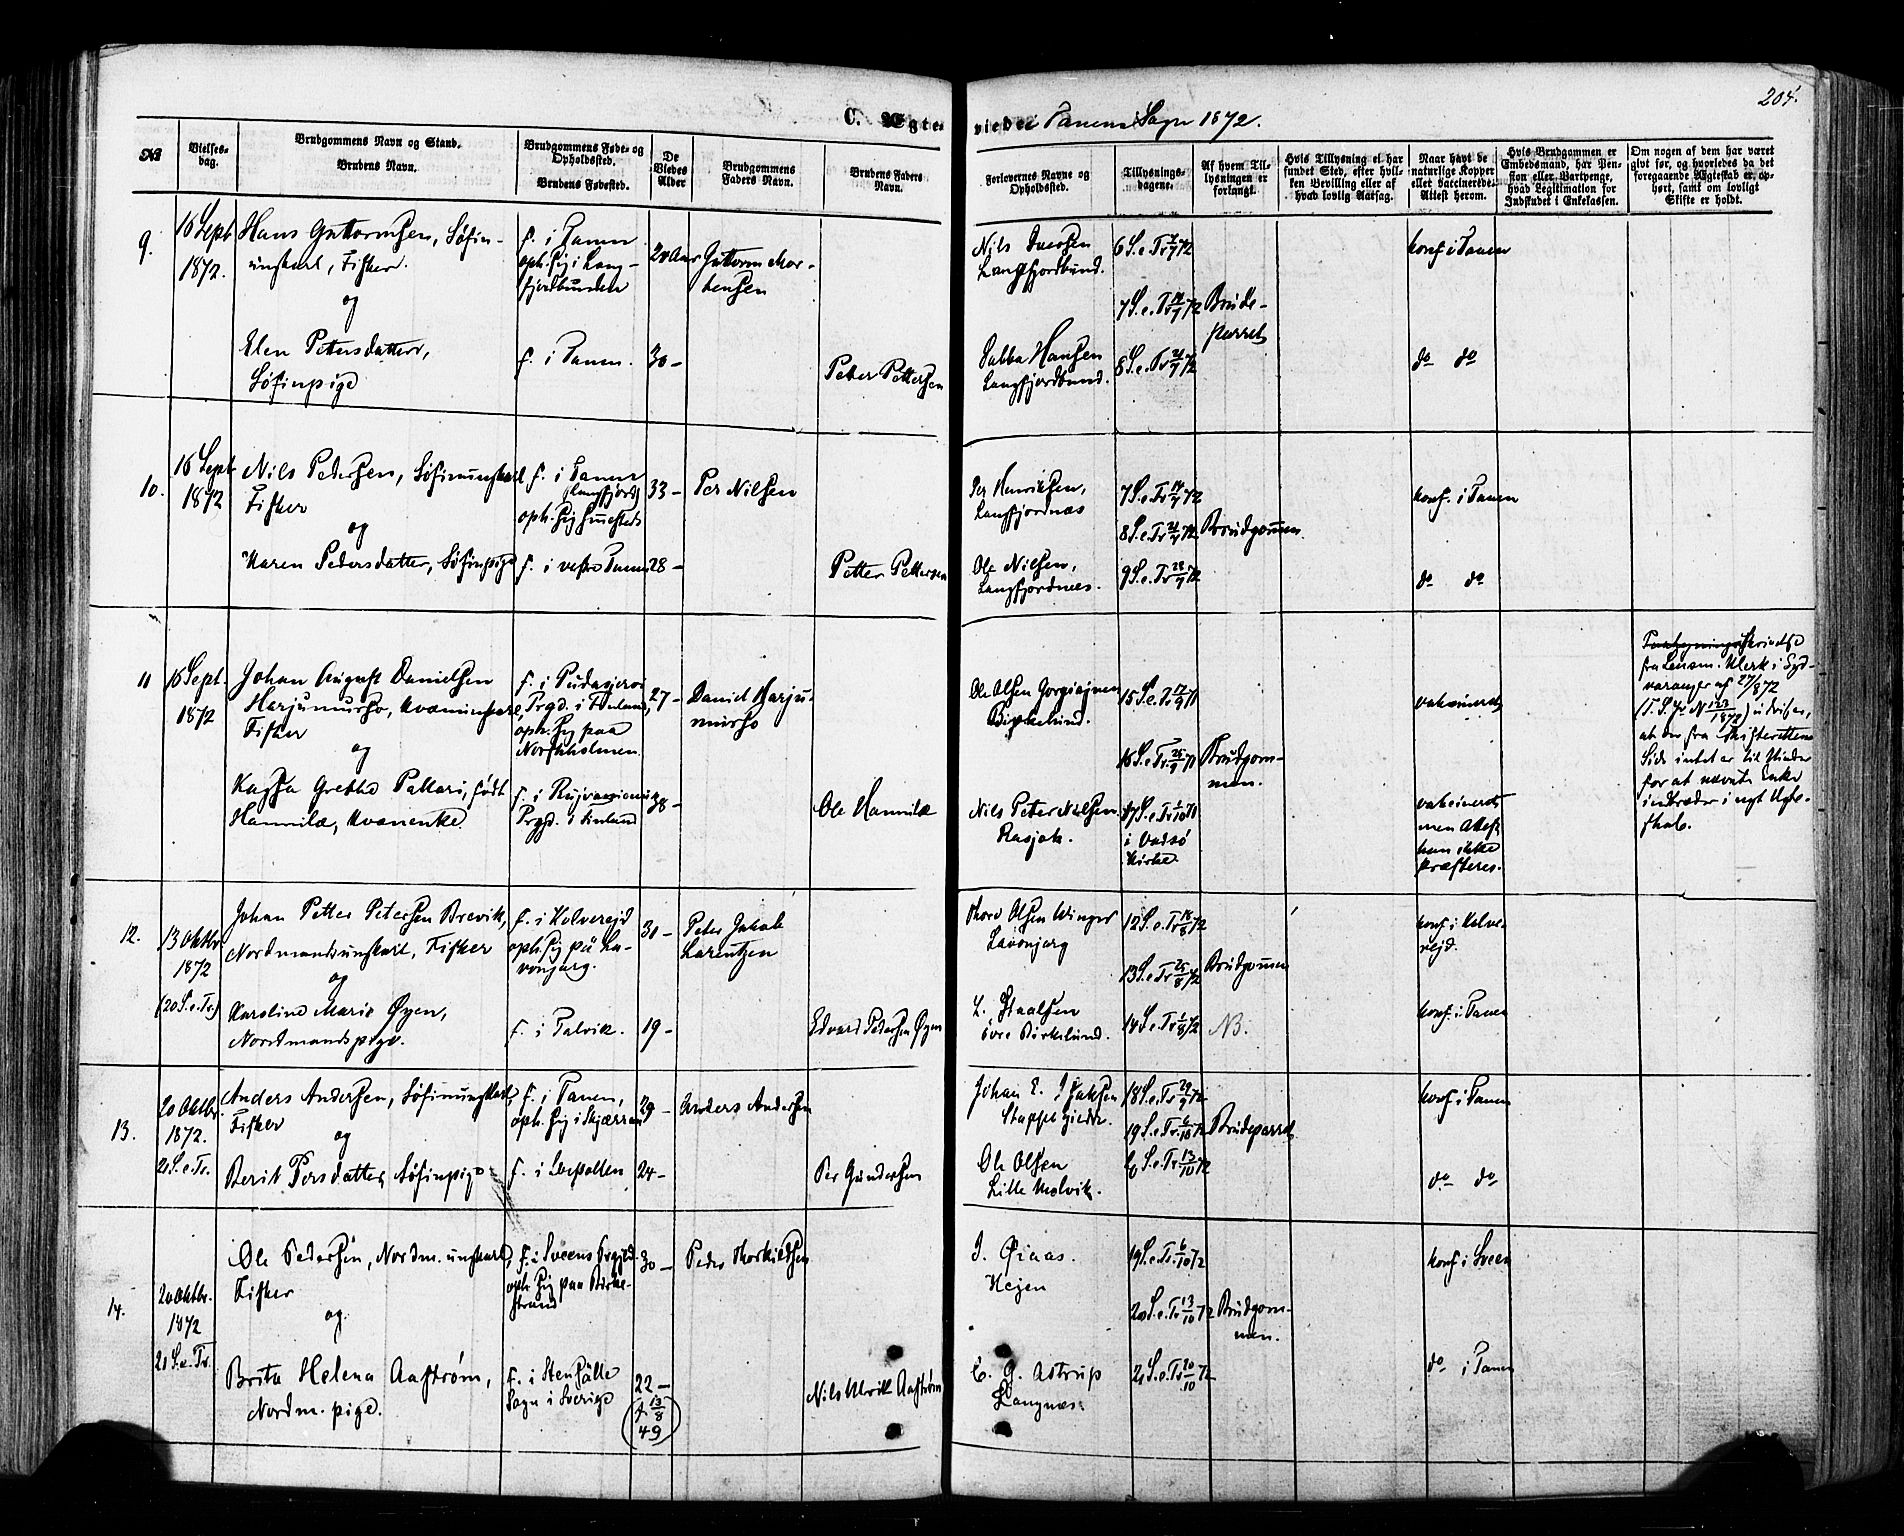 205.
C. Ægteviede i Tanens Sogn 1872.
No
Vielsesdag.
Brudgommens Navn og Stand.
Brudens Navn.
Brudgommens Føde- og Opholdssted.
Brudens Fødested.
De Viedes Alder
Brudgommens Faders Navn.
Brudens Faders Navn.
Forlovernes Navne og Opholdssted.
Tillysningsdagene.
Af hvem Tillysningen er forlangt.
Hvis Tillysning ei har fundet Sted, efter hvilken Bevilling eller af hvad lovlig Aarsag.
Naar havt de naturlige Kopper eller Vaccineredes Attest herom.
Hvis Brudgommen er Embedsmand, har Pension eller Vartpenge, hvad Legitimation for Indskudet i Enkekassen.
Om nogen af dem har været givt før, og hvorledes da det foregaaende Ægteskab er ophørt, samt om lovligt Skifte er holdt.
9.
16 Sept
1872.
Hans Guttormsen, Søfin-
unskarl, Fisker.
og
Elen Petersdatter,
Søfinpige
f. i Tanen
oph. sig i Lang-
fjordbunden
f. i Tanen.
20 Aar
30 -
Guttorm Mor-
tensen
Peter Pettersen
Nils
Langfjordbund.
Sabba Hansen
Langfjordbund.
6 S. e. Tr 7/7 72
7 S. e. Tr 14/7 72
8 S. e. Tr 21/7 72
Brude-
parret
konf i Tanen
do do
10.
16 Sept
1872
Nils Pedersen, Søfinunskarl
Fisker
og
Karen Pedersdatter, Søfinpige
f. i Tanen
(Langfjord)
oph. sig smesteds
f. i vestre Tanen
33 -
28 -
Per Nilsen
Petter Pettersen
Per Henriksen,
Langfjordnæs
Ole Nilsen,
Langfjordnæs.
7 S. e. Tr 14/7 72
8 S. e. Tr 21/7 72
9 S. e. Tr 28/7 72
Brudgommen.
konf. i Tanen
do do
11
16 Sept.
1872
Johan August Danielsen
Harjumurso, Kvænunskarl,
Fisker
og
Kaysa Grethe Pallari, født
Hannila, Kvænenke.
f. i Pudasjervi
Prgd. i Finland,
oph. sig paa
Norskholmen.
f. i
Prgd. i Finland
27 -
38 -
Daniel Harju-
murso
Ole Hannila
Ole Olsen
Birkelund.
Nils Peter Nielsen
Rasjok.
15 S. e. Tr 17/9 71
16 S. e. Tr. 25/9 71
17 S. e. Tr 1/10 71
i Vadsø
Kirke.
Brudgom-
men.
vakcineret
vakcineret
men Attest
kan ikke
kræfteres.
Skrivelse
fra Lensm. Klerk i Syd-
varanger af 27/8 72
(T. S. Jr. N 123/1872) udviser,
at der fra Skifterettens
Side intet er til Hinder
for at nævnte Enke
indtræder i nyt Ægte-
skab.
12.
13 Oktbr
1872
(20 S. e. Tr.)
Johan Petter Petersen Brevik,
Nordmandsunskarl, Fisker
og
Karoline Marie Øyen,
Nordmandspige.
f. i Kolvereid
oph. sig på La-
vonjarg.
f. i Talvik.
30 -
19 -
Peter Jakob
Larentzen
Edvard Petersen Øyen
Thore Olsen Winger
Lavonjarg
L. Staalsen
øvre Birkelund.
12 S. e. Tr 18/8 72
13 S. e. Tr 25/8 72
14 S. e. Tr 1/8 72
Brudgommen
NB.
konf i Kolve-
reid.
konf. i Tanen
13.
20 Oktbr.
1872.
21 S. e. Tr.
Anders Andersen, Søfinunskarl,
Fisker
og
Berit Persdatter, Søfinpige
f. i Tanen,
oph. sig i
f. i
29 -
24 -
Anders Andersen
Per Gundersen
Johan E. Isaksen
Stappelgiedde.
Ole Olsen
Lille Molvik.
18 S. e. Tr 29/9 72
19 S. e. Tr. 6/10 72
S. e. Tr 13/10 72
Brudeparret
konf i Tanen
do do
14.
20 Oktbr.
1872
21 S. e. Tr.
Ole Pedersen, Nordm. unskarl,
Fisker
og
Brita Helena Aastrøm,
Nordm. pige.
f. i Sveens Prgjld.
oph. sig paa Birke-
strand
f. i Stensälle
Sogn i Sverige
30 -
22 -
(f. 13/8 49)
Peder Thorkildsen
Nils Ulrik Aastrøm
Hejen
E. G. Astrup
Langnæs.
19 S. e. Tr. 6/10 72
20 S. e. Tr 13/10 72
21 S. e. Tr 20/10 72
Brudgom-
men.
konf i Sveen
do i Tanen